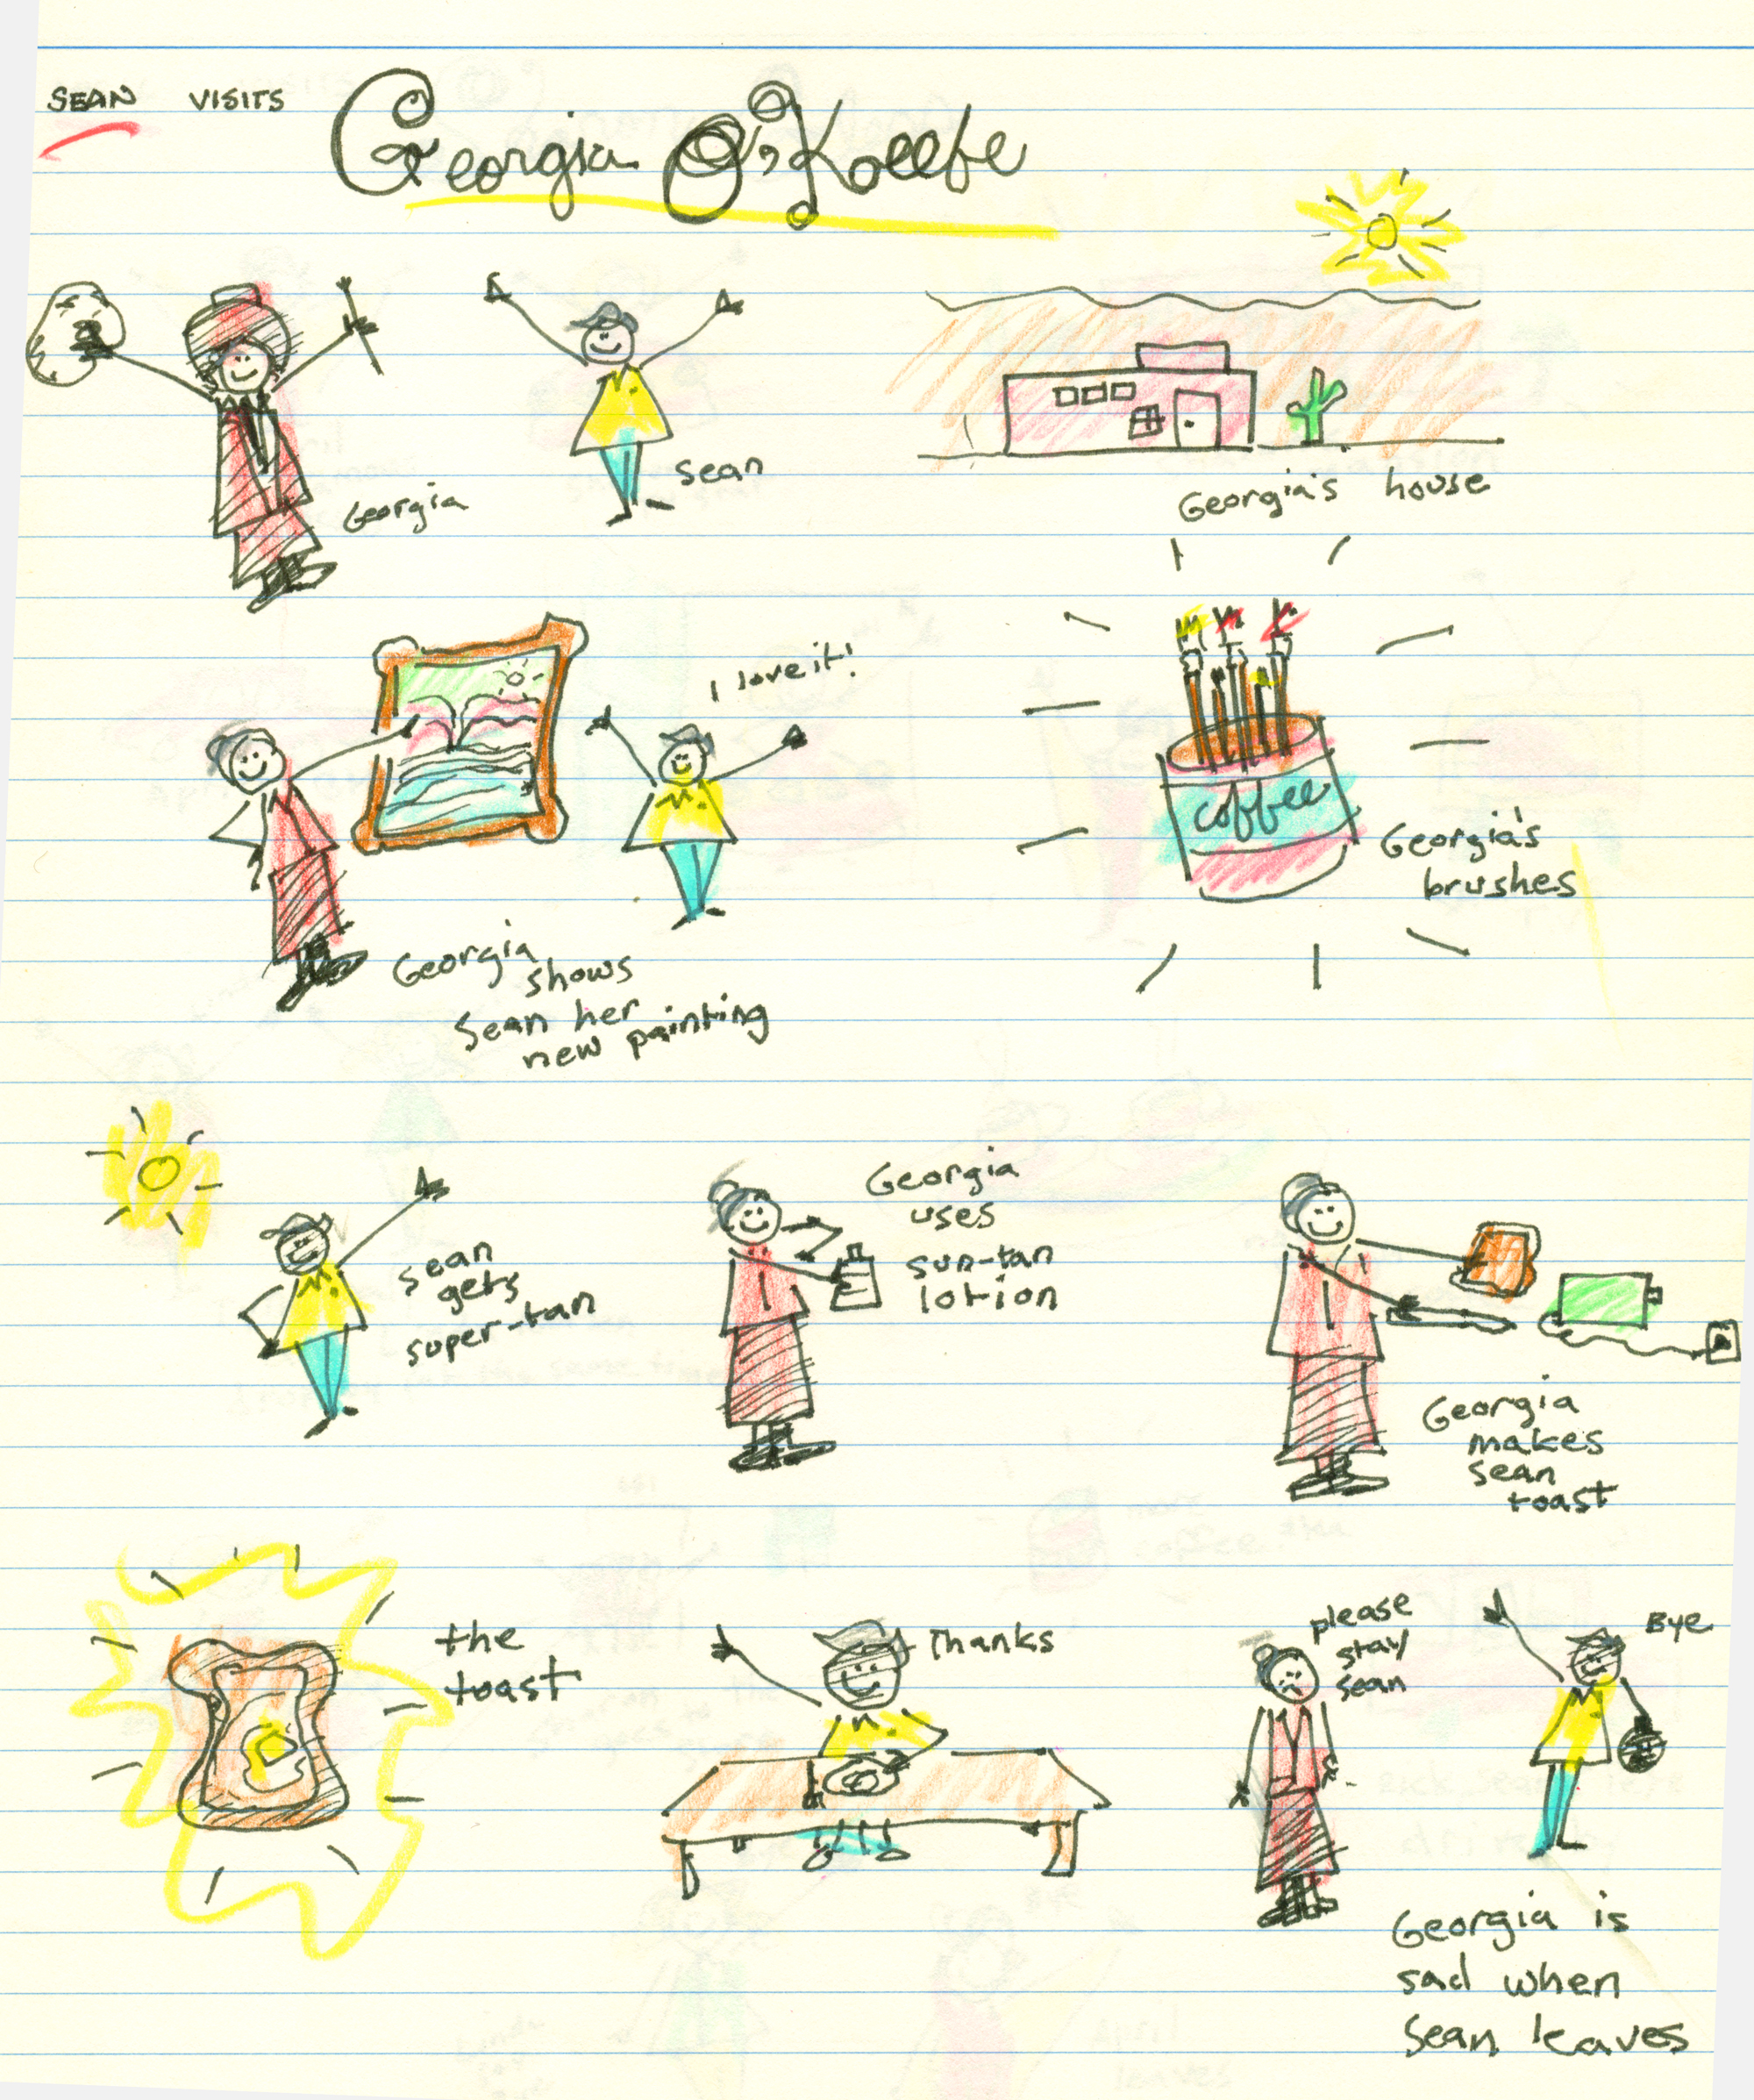 SEAN VISITS Georgia O'Koeefe
Georgia
Sean
Georgia's house
I love it!
Georgia
shows
Sean her
new painting
coffee
Georgia's
brushes
Sean
gets
super-tan
Georgia
uses
sun-tan
lotion
Georgia
makes
Sean
toast
the
toast
Thanks
please
stay
Sean
Bye
Georgia is
sad when
Sean leaves